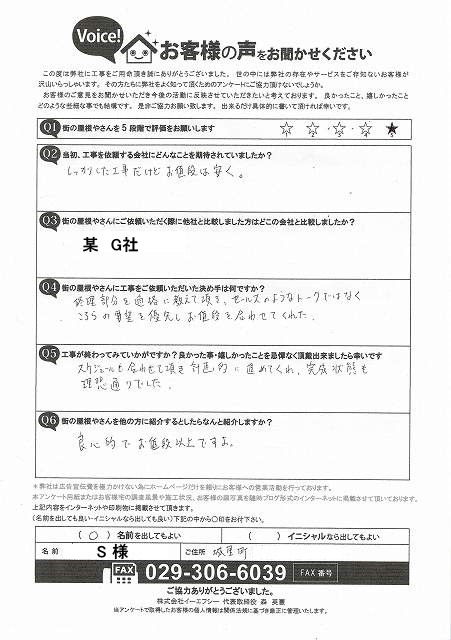 Voice!
お客様の声をお聞かせください
この度は弊社に工事をご用命頂き誠にありがとうございました。世の中には弊社の存在やサービスをご存知ないお客様が
沢山いらっしゃいます。その方たちに弊社をよく知って頂くためのアンケートにご協力頂けないでしょうか。
お客様のご意見をお聞かせいただき今後の活動に反映させていただきたいと考えております。良かったこと、嬉しかったこと
どのような些細な事でも結構です。是非ご協力お願い致します。出来るだけ具体的に書いて頂ければ幸いです。
Q1 街の屋根やさんを5段階で評価をお願いします ☆ ・ ☆ ・ ☆ ・ ☆ ・ ★
Q2 当初、工事を依頼する会社にどんなことを期待されていましたか?
しっかりした工事だけどお値段は安く。
Q3 街の屋根やさんにご依頼いただく際に他社と比較しました方はどこの会社と比較しましたか?
某 G社
Q4 街の屋根やさんに工事をご依頼いただいた決め手は何ですか?
修理部分を適格に教えて頂き、セールスのようなトークではなく
こちらの要望を優先しお値段を合わせてくれた.
Q5 工事が終わってみていかがですか?良かった事・嬉しかったことを忌憚なく頂戴出来ましたら幸いです
スケジュールも合わせて頂き計画的に進めてくれ、完成状態も
理想通りでした.
Q6 街の屋根やさんを他の方に紹介するとしたらなんと紹介しますか?
良心的でお値段以上ですよ。
※弊社は広告宣伝費を極力かけない為にホームページだけを頼りにお客様への営業活動を行っております。
本アンケート用紙またはお客様宅の調査風景や施工状況、お客様の顔写真を随時ブログ形式のインターネットに掲載させて頂いております。
上記内容をインターネットや印刷物に掲載させて頂きます。
(名前を出しても良い・イニシャルなら出しても良い)下記の中から〇印をお付け下さい。
( 〇 ) 名前を出してもよい ( ) イニシャルなら出してもよい
名前 S 様 ご住所 城里町
FAX 029-306-6039 FAX 番号
ご協力ありがとうございました。
株式会社イーエフシー 代表取締役 森 英憲
当アンケートで取得したお客様の個人情報は関係法規に基づき厳正に管理いたします。